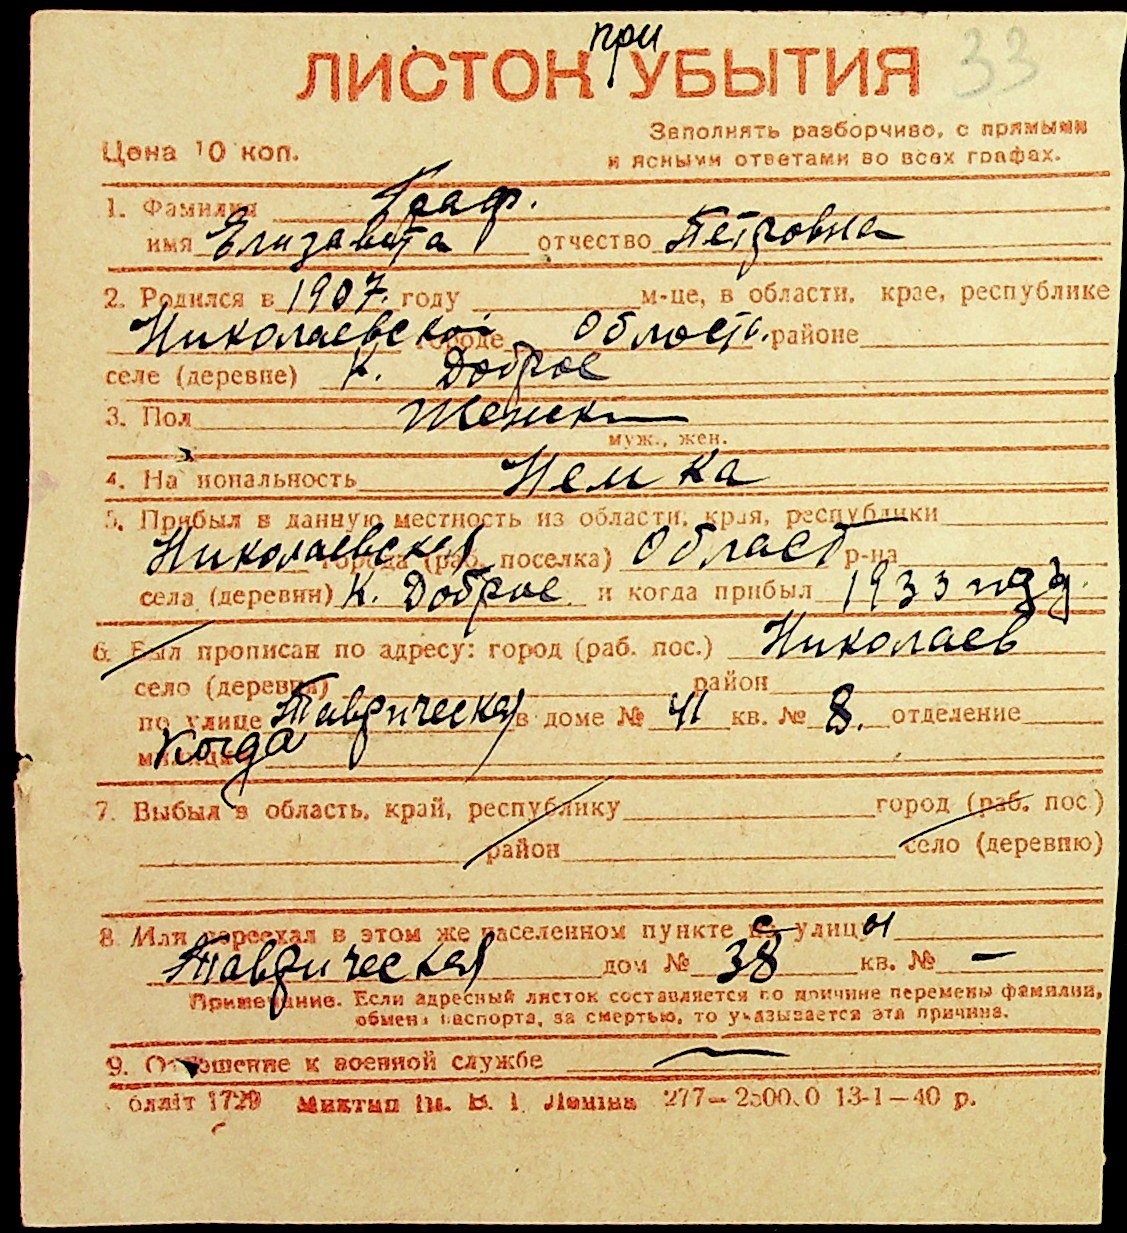 при
ЛИСТОК УБЫТИЯ 33
Заполнять разборчиво, с прямыми
Цена 10 коп. и ясными ответами во всех графах.
1. Фамилия Граф.
имя Елизавета отчество Петровна
2. Родился в 1907. году м-це, в области, крае, республике
Николаевской городе Область. районе
селе (деревне) К. Доброе
3. Пол Женск
муж., жен.
4. Национальность Немка
5. Прибыл в данную местность из области, края, республики
Николаевская города (раб. поселка) Област р-на
села (деревни) К. Доброе и когда прибыл 1933 году.
6. Был прописан по адресу: город (раб. пос.) Николаев
село (деревня) район
по улице Таврическая в доме № 41 кв. № 8. отделение
милиции Когда
7. Выбыл в область, край, республику город (раб. пос.)
район село (деревню)
8 Или переехал в этом же населенном пункте с улицы
Таврическая дом № 38 кв. № —
Примечание. Если адресный листок составляется по причине перемены фамилии,
обмена паспорта, за смертью, то указывается эта причина.
9. Отношение к военной службе —
блліт 1729 Миктип Ім. В. І. Леніна 277— 13-1—40 р.